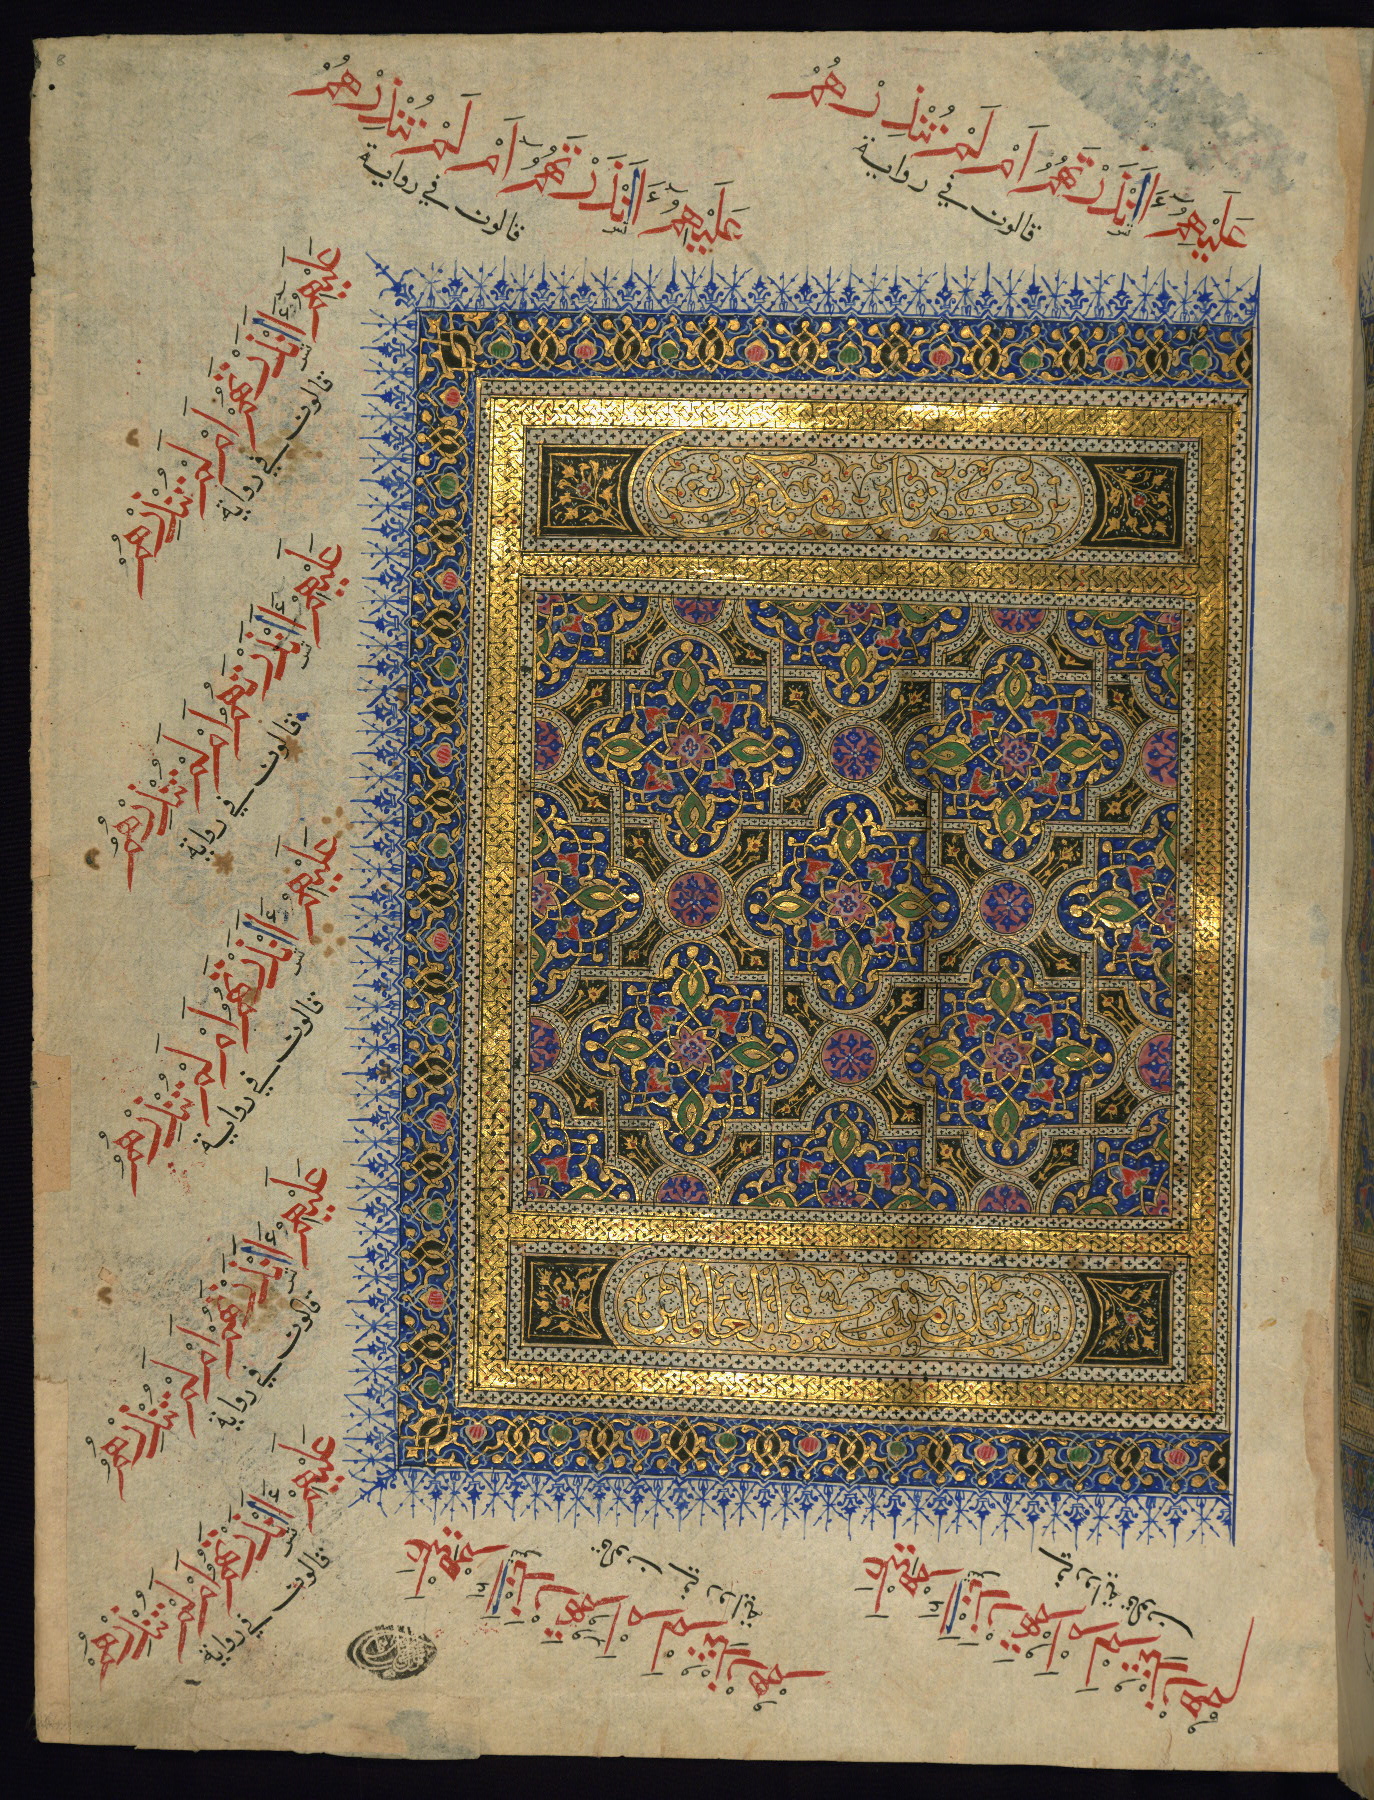 عليهم ءأنذرتهم أم لم تنذرهم
قالون في رواية
عليهم ءأنذرتهم أم لم تنذرهم
قالون في رواية
في كتاب مكنون
تنزيل من رب العالمين
عليهم ءأنذرتهم أم لم تنذرهم
قالون في رواية
عليهم ءأنذرتهم أم لم تنذرهم
قالون في رواية
عليهم ءأنذرتهم أم لم تنذرهم
قالون في رواية
عليهم ءأنذرتهم أم لم تنذرهم
قالون في رواية
عليهم ءأنذرتهم أم لم تنذرهم
قالون في رواية
عليهم ءأنذرتهم أم لم تنذرهم
قالون في رواية
عليهم ءأنذرتهم أم لم تنذرهم
قالون في رواية
8